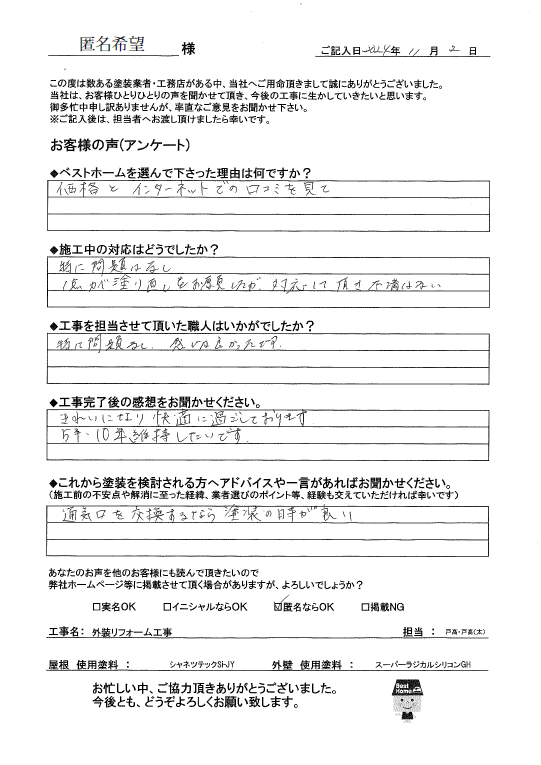 匿名希望 様
ご記入日 2024年 11月 2日
この度は数ある塗装業者・工務店がある中、当社へご用命頂きまして誠にありがとうございました。
当社は、お客様ひとりひとりの声を聞かせて頂き、今後の工事に生かしていきたいと思います。
御多忙中申し訳ありませんが、率直なご意見をお聞かせ下さい。
※ご記入後は、担当者へお渡し頂けましたら幸いです。
お客様の声(アンケート)
◆ベストホームを選んで下さった理由は何ですか?
価格と インターネットでの口コミを見て
◆施工中の対応はどうでしたか?
特に問題はなし
塗り直しをお願いしたが、対応して頂き不満はない
◆工事を担当させて頂いた職人はいかがでしたか?
特に問題なし。感じは良かったです。
◆工事完了後の感想をお聞かせください。
きれいになり快適に過ごしております
5年・10年維持したいです。
◆これから塗装を検討される方へアドバイスや一言があればお聞かせください。
(施工前の不安点や解消に至った経緯、業者選びのポイント等、経験も交えていただければ幸いです)
通気口を交換するなら塗装の時が良い
あなたのお声を他のお客様にも読んで頂きたいので
弊社ホームページ等に掲載させて頂く場合がありますが、よろしいでしょうか?
□実名OK □イニシャルならOK ☑匿名ならOK □掲載NG
工事名: 外装リフォーム工事 担当 : 戸高・戸高(太)
屋根 使用塗料 : シャネツテックSi-JY 外壁 使用塗料 : スーパーラジカルシリコンGH
お忙しい中、ご協力頂きありがとうございました。
今後とも、どうぞよろしくお願い致します。
Best Home